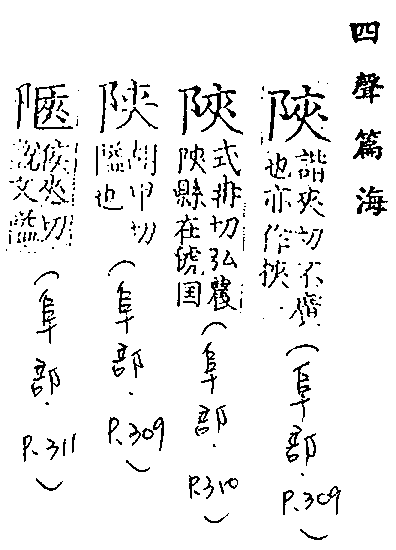 四聲篇海
陝 諧夾切不廣
也亦作挾
(阜部.P.309)
陝 式冉切弘農
陝縣在虢国
(阜部.P.310)
陜 胡甲切
隘也
(阜部.P.309)
候夾切
說文隘
(阜部.P.311)